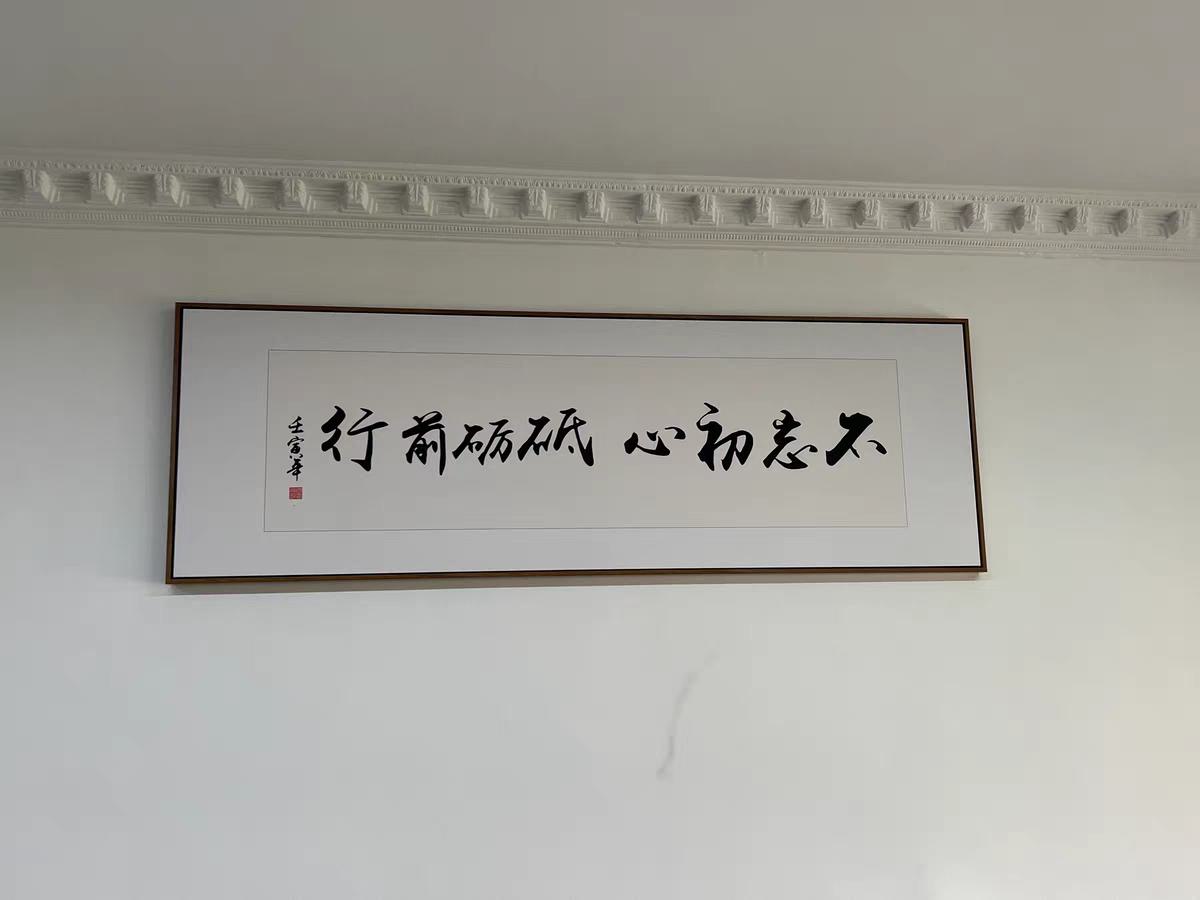 不忘初心 砥砺前行
壬寅年